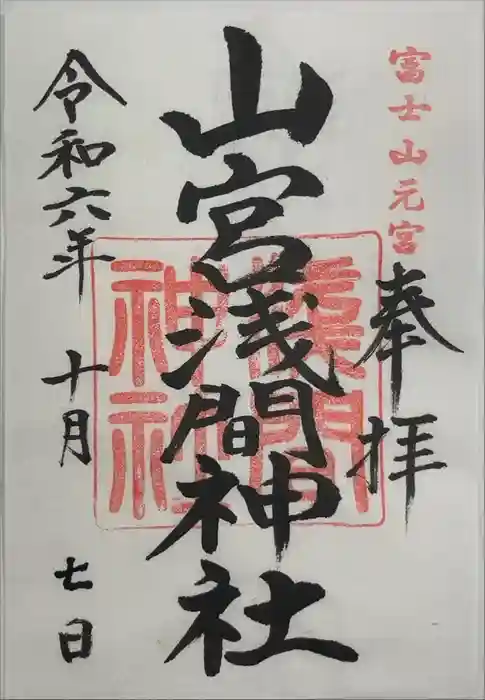 富士山元宮
奉拝
山宮浅間神社
淺間
神社
令和六年
十月
七日